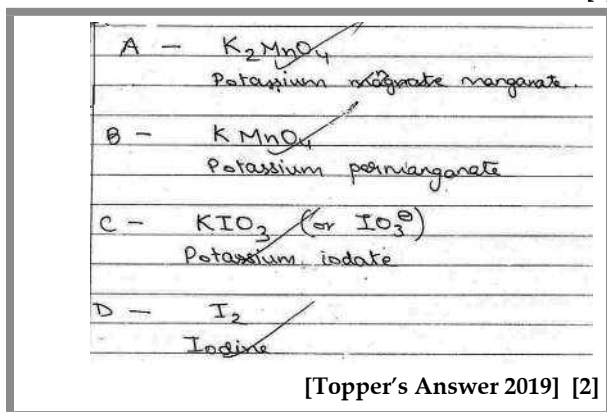 A — K₂MnO₄
Potassium manganate.
B — KMnO₄
Potassium permanganate
C — KIO₃ (or IO₃⊖)
Potassium iodate
D — I₂
Iodine
[Topper's Answer 2019] [2]